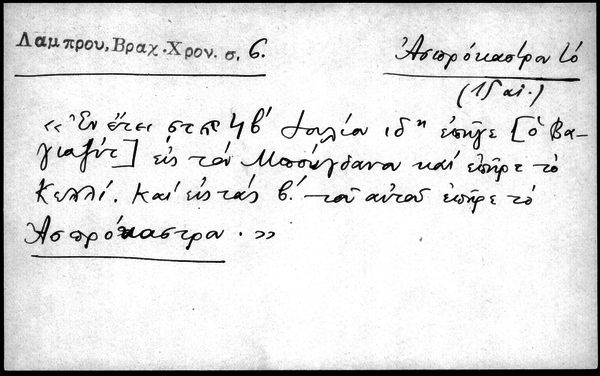 Λαμπρου, Βραχ. Χρον. σ. 6.
Ἀσπρόκαστρον τό
(15 αἰ.)
«Ἐν ἔτει ϛτπ ϟβ' Ἰουλίου ιδῃ ἐπῆγε [ὁ Βα-
γιαζὴτ] εἰς τὸν Μπόγδανα καὶ ἐπῆρε τὸ
Κελλί. Καὶ εἰς τὰς β.' τοῦ αὐτοῦ ἐπῆρε τὸ
Ἀσπρόκαστρον.»